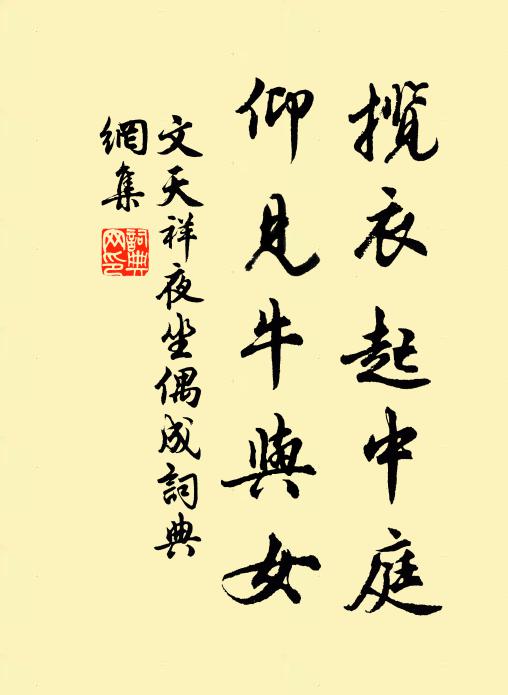 攬衣起中庭
仰見牛與女
文天祥夜坐偶成詞典
網集
詞典
网印